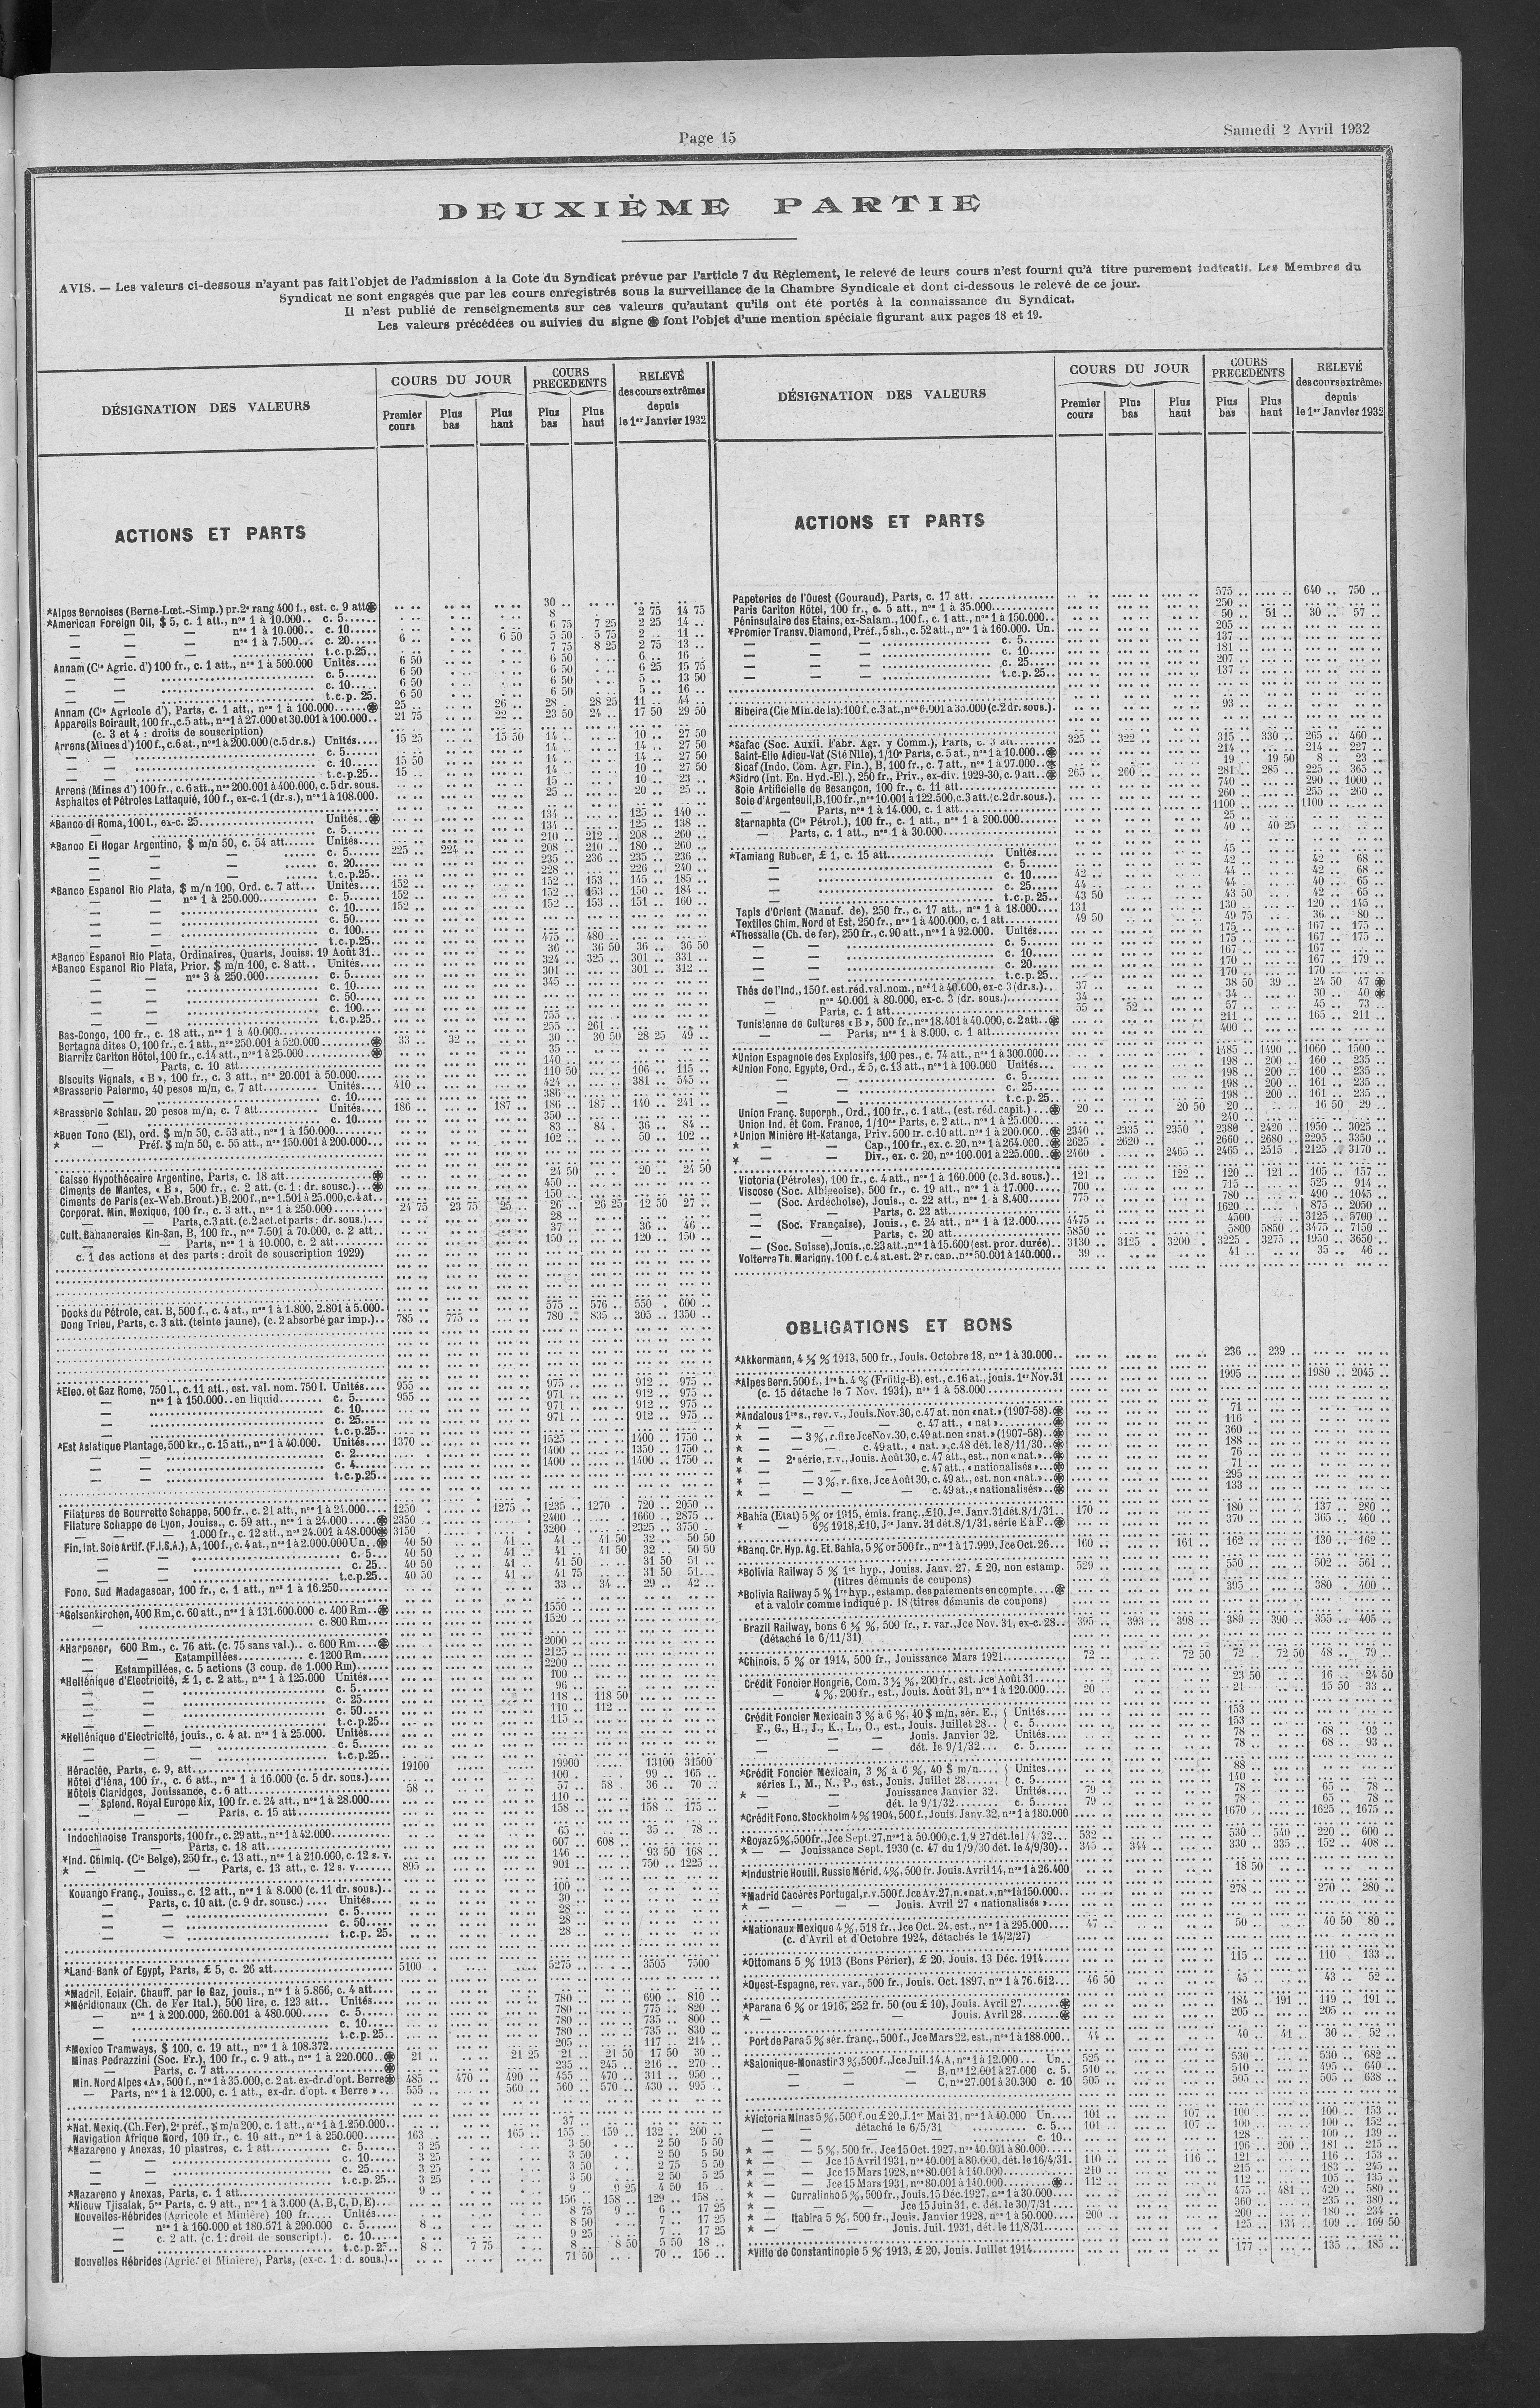 Page 15
Samedi 2 Avril 1932
DEUXIÈME PARTIE
AVIS. — Les valeurs ci-dessous n'ayant pas fait l'objet de l'admission à la Cote du Syndicat prévue par l'article 7 du Règlement, le relevé de leurs cours n'est fourni qu'à titre purement indicatif. Les Membres du
Syndicat ne sont engagés que par les cours enregistrés sous la surveillance de la Chambre Syndicale et dont ci-dessous le relevé de ce jour.
Il n'est publié de renseignements sur ces valeurs qu'autant qu'ils ont été portés à la connaissance du Syndicat.
Les valeurs précédées ou suivies du signe ⊛ font l'objet d'une mention spéciale figurant aux pages 18 et 19.
DÉSIGNATION DES VALEURS
COURS DU JOUR
COURS PRECEDENTS
RELEVÉ des cours extrêmes depuis le 1er Janvier 1932
Premier cours
Plus bas
Plus haut
Plus bas
Plus haut
ACTIONS ET PARTS
*Alpes Bernoises (Berne-Lœt.-Simp.) pr. 2e rang 400 f., est. c. 9 att ⊛ 30
*American Foreign Oil, $ 5, c. 1 att., nos 1 à 10.000.. c. 5 8 2 75 14 75
— — nos 1 à 10.000.. c. 10 6 75 7 25 2 25 14
— — nos 1 à 7.500... c. 20 6 6 50 5 50 5 75 2 11
— — t.c.p.25 7 75 8 25 2 75 13
Annam (Cie Agric. d') 100 fr., c. 1 att., nos 1 à 500.000 Unités 6 50 6 50 6 16
— — c. 5 6 50 6 50 6 25 15 75
— — c. 10 6 50 6 50 5 13 50
— — t.c.p. 25 6 50 6 50 5 16
Annam (Cie Agricole d'), Parts, c. 1 att., nos 1 à 100.000 ⊛ 25 26 28 28 25 11 44
Appareils Boirault, 100 fr., c. 5 att., nos 1 à 27.000 et 30.001 à 100.000 21 75 22 23 50 24 17 50 29 50
(c. 3 et 4 : droits de souscription)
Arrens (Mines d') 100 f., c. 6 at., nos 1 à 200.000 (c. 5 dr. s.) Unités 15 25 15 50 14 10 27 50
— — c. 5 14 14 27 50
— — c. 10 15 50 14 14 27 50
— — t.c.p.25 15 14 10 27 50
Arrens (Mines d') 100 fr., c. 6 att., nos 200.001 à 400.000, c. 5 dr. sous. 15 10 23
Asphaltes et Pétroles Lattaquié, 100 f., ex-c. 1 (dr. s.), nos 1 à 108.000 25 20 25
*Banco di Roma, 100 l., ex-c. 25 Unités ⊛ 134 125 140
c. 5 134 125 138
*Banco El Hogar Argentino, $ m/n 50, c. 54 att Unités 210 212 208 260
— — c. 5 225 224 208 210 180 260
— — c. 20 235 236 235 236
— — t.c.p.25 228 226 240
*Banco Espanol Rio Plata, $ m/n 100, Ord. c. 7 att Unités 152 152 153 145 185
— — nos 1 à 250.000 c. 5 152 152 153 150 184
— — c. 10 152 152 153 151 160
— — c. 50
— — c. 100
— — t.c.p.25 475 480
*Banco Espanol Rio Plata, Ordinaires, Quarts, Jouiss. 19 Août 31 36 36 50 36 36 50
*Banco Espanol Rio Plata, Prior. $ m/n 100, c. 8 att Unités 324 325 301 331
— — nos 3 à 250.000 c. 5 301 301 312
— — c. 10 345
— — c. 50
— — c. 100
— — t.c.p.25 755
Bas-Congo, 100 fr., c. 18 att., nos 1 à 40.000 255 261
Bertagna dites O, 100 fr., c. 1 att., nos 250.001 à 520.000 ⊛ 33 32 30 30 50 28 25 49
Biarritz Carlton Hôtel, 100 fr., c. 14 att., nos 1 à 25.000 ⊛ 35
— Parts, c. 10 att 140
Biscuits Vignals, « B », 100 fr., c. 3 att., nos 20.001 à 50.000 110 50 106 115
*Brasserie Palermo, 40 pesos m/n, c. 7 att Unités 410 424 381 545
c. 10 386
*Brasserie Schlau. 20 pesos m/n, c. 7 att Unités 186 187 186 187 140 241
c. 10 350
*Buen Tono (El), ord. $ m/n 50, c. 53 att., nos 1 à 150.000 83 84 36 84
* — Préf. $ m/n 50, c. 55 att., nos 150.001 à 200.000 102 50 102
Caisse Hypothécaire Argentine, Parts, c. 18 att ⊛ 24 50 20 24 50
Ciments de Mantes, « B », 500 fr., c. 2 att. (c. 1 : dr. sousc.) ⊛ 450
Ciments de Paris (ex-Web. Brout.) B, 200 f., nos 1.501 à 25.000, c. 4 at. 150
Corporat. Min. Mexique, 100 fr., c. 3 att., nos 1 à 250.000 24 75 23 75 25 26 26 25 12 50 27
— — Parts, c. 3 att. (c. 2 act. et parts : dr. sous.) 28
Cult. Bananeraies Kin-San, B, 100 fr., nos 7.501 à 70.000, c. 2 att 37 36 46
— — Parts, nos 1 à 10.000, c. 2 att 150 120 150
c. 1 des actions et des parts : droit de souscription 1929)
Docks du Pétrole, cat. B, 500 f., c. 4 at., nos 1 à 1.800, 2.801 à 5.000 575 576 550 600
Dong Trieu, Parts, c. 3 att. (teinte jaune), (c. 2 absorbé par imp.) 785 775 780 835 305 1350
*Elec. et Gaz Rome, 750 l., c. 11 att., est. val. nom. 750 l. Unités 955 975 912 975
— nos 1 à 150.000.. en liquid c. 5 955 971 912 975
— c. 10 971 912 975
— c. 25 971 912 975
— t.c.p.25
*Est Asiatique Plantage, 500 kr., c. 15 att., nos 1 à 40.000. Unités 1370 1525 1400 1750
— — c. 2 1400 1350 1750
— — c. 4 1400 1400 1750
— — t.c.p.25
Filatures de Bourrette Schappe, 500 fr., c. 21 att., nos 1 à 24.000 1250 1275 1235 1270 720 2050
Filature Schappe de Lyon, Jouiss., c. 59 att., nos 1 à 24.000 ⊛ 2350 2400 1660 2875
— — 1.000 fr., c. 12 att., nos 24.001 à 48.000 ⊛ 3150 3200 2325 3750
Fin. Int. Soie Artif. (F.I.S.A.), A, 100 f., c. 4 at., nos 1 à 2.000.000 Un ⊛ 40 50 41 41 41 50 32 50 50
— — c. 5 40 50 41 41 41 50 32 50 50
— — c. 25 40 50 41 41 50 31 50 51
— — t.c.p.25 40 50 41 41 75 31 50 51
Fonc. Sud Madagascar, 100 fr., c. 1 att., nos 1 à 16.250 33 34 29 42
*Gelsenkirchen, 400 Rm, c. 60 att., nos 1 à 131.600.000 c. 400 Rm ⊛ 1550
— c. 800 Rm 1520
*Harpener, 600 Rm., c. 76 att. (c. 75 sans val.).. c. 600 Rm ⊛ 2000
— — Estampillées c. 1200 Rm 2125
— Estampillées, c. 5 actions (3 coup. de 1.000 Rm) 2200
*Hellénique d'Electricité, £ 1, c. 2 att., nos 1 à 125.000 Unités 100
— — c. 5 96
— — c. 25 118 118 50
— — c. 50 110 112
— — t.c.p.25 115
*Hellénique d'Electricité, jouis., c. 4 at. nos 1 à 25.000. Unités
— — c. 5
— — t.c.p.25
Héraclée, Parts, c. 9, att 19100 19900 13100 31500
Hôtel d'Iéna, 100 fr., c. 6 att., nos 1 à 16.000 (c. 5 dr. sous.) 100 99 165
Hôtels Claridges, Jouissance, c. 6 att 58 57 58 36 70
— Splend. Royal Europe Aix, 100 fr. c. 24 att., nos 1 à 28.000 110
— — Parts, c. 15 att 158 158 175
Indochinoise Transports, 100 fr., c. 29 att., nos 1 à 42.000 65 35 78
— Parts, c. 18 att 607 608
*Ind. Chimiq. (Cie Belge), 250 fr., c. 13 att., nos 1 à 210.000, c. 12 s. v. 146 93 50 168
* — — Parts, c. 13 att., c. 12 s. v 895 901 750 1225
Kouango Franç., Jouiss., c. 12 att., nos 1 à 8.000 (c. 11 dr. sous.) 100
— Parts, c. 10 att. (c. 9 dr. sousc.) Unités 30
— — c. 5 28
— — c. 50 28
— — t.c.p. 25 28
*Land Bank of Egypt, Parts, £ 5, c. 26 att 5100 5275 3505 7500
*Madril. Eclair. Chauff. par le Gaz, jouis., nos 1 à 5.866, c. 4 att
*Méridionaux (Ch. de Fer Ital.), 500 lire, c. 123 att.. Unités 780 690 810
— nos 1 à 200.000, 260.001 à 480.000 c. 5 780 775 820
— c. 10 780 735 800
— t.c.p.25 780 735 830
*Mexico Tramways, $ 100, c. 19 att., nos 1 à 108.372 205 117 214
Minas Pedrazzini (Soc. Fr.), 100 fr., c. 9 att., nos 1 à 220.000 ⊛ 21 21 25 21 21 50 17 50 30
— Parts, c. 7 att ⊛ 235 245 216 270
Min. Nord Alpes «A», 500 f., nos 1 à 35.000, c. 2 at. ex-dr. d'opt. Berre ⊛ 485 470 490 455 470 311 950
— Parts, nos 1 à 12.000, c. 1 att., ex-dr. d'opt. « Berre » 555 560 560 570 430 995
*Nat. Mexiq. (Ch. Fer), 2e préf., $ m/n 200, c. 1 att., nos 1 à 1.250.000 37
Navigation Afrique Nord, 100 fr., c. 10 att., nos 1 à 250.000 163 165 155 159 132 200
*Nazareno y Anexas, 10 piastres, c. 1 att c. 5 3 25 3 50 2 50 5 50
— — c. 10 3 25 3 50 2 50 5 50
— — c. 25 3 25 3 50 2 75 5 50
— — t.c.p.25 3 25 3 50 2 50 5 25
*Nazareno y Anexas, Parts, c. 1 att 9 9 9 25 4 50 15
*Nieuw Tjisalak, 5es Parts, c. 9 att., nos 1 à 3.000 (A, B, C, D, E) 156 158 129 158
Nouvelles-Hébrides (Agricole et Minière) 100 fr Unités 8 75 9 6 17 25
— nos 1 à 160.000 et 180.571 à 290.000 c. 5 8 8 50 7 17 25
— c. 2 att. (c. 1: droit de souscript.) c. 10 9 25 7 17 25
— t.c.p.25 8 7 75 8 8 50 5 50 18
Nouvelles Hébrides (Agric. et Minière), Parts, (ex-c. 1 : d. sous.) 71 50 70 156
DÉSIGNATION DES VALEURS
COURS DU JOUR
COURS PRECEDENTS
RELEVÉ des cours extrêmes depuis le 1er Janvier 1932
Premier cours
Plus bas
Plus haut
Plus bas
Plus haut
ACTIONS ET PARTS
Papeteries de l'Ouest (Gouraud), Parts, c. 17 att 575 640 750
Paris Carlton Hôtel, 100 fr., c. 5 att., nos 1 à 35.000 250
Péninsulaire des Etains, ex-Salam., 100 f., c. 1 att., nos 1 à 150.000 50 51 30 57
*Premier Transv. Diamond, Préf., 5 sh., c. 52 att., nos 1 à 160.000. Un. 205
— — c. 5 137
— — c. 10 181
— — c. 25 207
— — t.c.p.25 137
Ribeira (Cie Min. de la): 100 f. c. 3 at., nos 6.001 à 35.000 (c. 2 dr. sous.) 93
*Safac (Soc. Auxil. Fabr. Agr. y Comm.), Parts, c. 3 att 325 322 315 330 265 460
Saint-Elie Adieu-Vat (Sté Nlle), 1/10e Parts, c. 5 at., nos 1 à 10.000 ⊛ 214 214 227
Sicaf (Indo. Com. Agr. Fin.), B, 100 fr., c. 7 att., nos 1 à 97.000 ⊛ 19 19 50 8 23
*Sidro (Int. En. Hyd-El.), 250 fr., Priv., ex-div. 1929-30, c. 9 att ⊛ 265 260 281 285 225 365
Soie Artificielle de Besançon, 100 fr., c. 11 att 740 290 1000
Soie d'Argenteuil, B, 100 fr., nos 10.001 à 122.500, c. 3 att. (c. 2 dr. sous.) 260 255 260
— Parts, nos 1 à 14.000, c. 1 att 1100 1100
Starnaphta (Cie Pétrol.), 100 fr., c. 1 att., nos 1 à 200.000 25
— Parts, c. 1 att., nos 1 à 30.000 40 40 25
*Tamiang Rubber, £ 1, c. 15 att Unités 45
— c. 5 42 42 68
— c. 10 42 44 42 68
— c. 25 44 44 40 65
— t.c.p.25 43 50 43 50 42 65
Tapis d'Orient (Manuf. de), 250 fr., c. 17 att., nos 1 à 18.000 131 130 120 145
Textiles Chim. Nord et Est, 250 fr., nos 1 à 400.000, c. 1 att 49 50 49 75 36 80
*Thessalie (Ch. de fer), 250 fr., c. 90 att., nos 1 à 92.000. Unités 175 167 175
— — c. 5 175 167 175
— — c. 10 167 167
— — c. 20 170 167 179
— — t.c.p.25 170 170
Thés de l'Ind., 150 f. est. réd. val. nom., nos 1 à 40.000, ex-c. 3 (dr. s.) 37 38 50 39 24 50 47 ⊛
— nos 40.001 à 80.000, ex-c. 3 (dr. sous.) 34 34 30 40 ⊛
— Parts, c. 1 att 55 52 57 45 73
Tunisienne de Cultures « B », 500 fr., nos 18.401 à 40.000, c. 2 att ⊛ 211 165 211
— — Parts, nos 1 à 8.000, c. 1 att 400
*Union Espagnole des Explosifs, 100 pes., c. 74 att., nos 1 à 300.000 1485 1490 1060 1500
*Union Fonc. Egypte, Ord., £ 5, c. 13 att., nos 1 à 100.000 Unités 198 200 160 235
— — c. 5 198 200 160 235
— — c. 25 198 200 161 235
— — t.c.p.25 198 200 161 235
Union Franç. Superph., Ord., 100 fr., c. 1 att., (est. réd. capit.) ⊛ 20 20 50 20 16 50 29
Union Ind. et Com. France, 1/10es Parts, c. 2 att., nos 1 à 25.000 240
*Union Minière Ht-Katanga, Priv. 500 fr. c. 10 att. nos 1 à 200.000 ⊛ 2340 2335 2350 2380 2420 1950 3025
* — Cap., 100 fr., ex. c. 20, nos 1 à 264.000 ⊛ 2625 2620 2660 2680 2295 3350
* — Div., ex. c. 20, nos 100.001 à 225.000 ⊛ 2460 2465 2465 2515 2125 3170
Victoria (Pétroles), 100 fr., c. 4 att., nos 1 à 160.000 (c. 3 d. sous.) 121 122 120 121 105 157
Viscose (Soc. Albigeoise), 500 fr., c. 19 att., nos 1 à 17.000 700 715 525 914
— (Soc. Ardéchoise), Jouis., c. 22 att., nos 1 à 8.400 775 780 490 1045
— — Parts, c. 22 att 1620 875 2050
— (Soc. Française), Jouis., c. 24 att., nos 1 à 12.000 4475 4500 3125 5700
— — Parts, c. 20 att 5850 5800 5850 3475 7150
— (Soc. Suisse), Jouis., c. 23 att., nos 1 à 15.600 (est. pror. durée) 3130 3125 3200 3225 3275 1950 3650
Volterra Th. Marigny, 100 f. c. 4 at. est. 2e r. cap., nos 50.001 à 140.000 39 41 35 46
OBLIGATIONS ET BONS
*Akkermann, 4 ½ % 1913, 500 fr., Jouis. Octobre 18, nos 1 à 30.000 236 239
*Alpes Bern. 500 f., 1re h. 4 % (Frütig-B), est., c. 16 at., jouis. 1er Nov. 31 1995 1980 2045
(c. 15 détache le 7 Nov. 1931), nos 1 à 58.000
*Andalous 1re s., rev. v., Jouis. Nov. 30, c. 47 at. non «nat.» (1907-58) ⊛ 71
* — — c. 47 att., « nat » ⊛ 116
* — — 3 %, r. fixe Jce Nov. 30, c. 49 at. non «nat.» (1907-58) ⊛ 360
* — — c. 49 att., « nat. », c. 48 dét. le 8/11/30 ⊛ 188
* — 2e série, r. v., Jouis. Août 30, c. 47 att., est., non «nat.» ⊛ 76
* — — c. 47 att., « nationalisés » ⊛ 71
* — — 3 %, r. fixe, Jce Août 30, c. 49 at., est. non «nat.» ⊛ 295
* — — c. 49 at., «nationalisés» ⊛ 133
*Bahia (Etat) 5 % or 1915, émis. franç., £10, Jce. Janv. 31 dét. 8/1/31 170 180 137 280
* — 6% 1918, £10, Jce Janv. 31 dét. 8/1/31, série E à F ⊛ 370 365 460
*Banq. Cr. Hyp. Ag. Et. Bahia, 5 % or 500 fr., nos 1 à 17.999, Jce Oct. 26 160 161 162 130 162
*Bolivia Railway 5 % 1re hyp., Jouiss. Janv. 27, £ 20, non estamp. 529 550 502 561
(titres démunis de coupons)
*Bolivia Railway 5 % 1re hyp., estamp. des paiements en compte ⊛ 395 380 400
et à valoir comme indiqué p. 18 (titres démunis de coupons)
Brazil Railway, bons 6 ½ %, 500 fr., r. var., Jce Nov. 31, ex-c. 28 395 393 398 389 390 355 405
(détaché le 6/11/31)
*Chinois. 5 % or 1914, 500 fr., Jouissance Mars 1921 72 72 50 72 72 50 48 79
Crédit Foncier Hongrie, Com. 3 ½ %, 200 fr., est. Jce Août 31 23 50 16 24 50
— 4 %, 200 fr., est., Jouis. Août 31, nos 1 à 120.000 20 21 15 50 33
Crédit Foncier Mexicain 3 % à 6 %, 40 $ m/n, sér. E., { Unités 153
F., G., H., J., K., L., O., est., Jouis. Juillet 28 { c. 5 153
— — Jouis. Janvier 32. Unités 78 68 93
— — dét. le 9/1/32 c. 5 78 68 93
*Crédit Foncier Mexicain, 3 % à 6 %, 40 $ m/n { Unites 88
séries I., M., N., P., est., Jouis. Juillet 28 { c. 5 140
* — — Jouissance Janvier 32. Unités 79 78 65 78
— — dét. le 9/1/32 c. 5 79 78 65 78
*Crédit Fonc. Stockholm 4 % 1904, 500 f., Jouis. Janv. 32, nos 1 à 180.000 1670 1625 1675
*Goyaz 5%, 500 fr., Jce Sept. 27, nos 1 à 50.000, c. 1/9/27 dét. le 1/4/32 532 530 540 220 600
* — — Jouissance Sept. 1930 (c. 47 du 1/9/30 dét. le 4/9/30) 345 344 330 335 152 408
*Industrie Houill. Russie Mérid. 4%, 500 fr. Jouis. Avril 14, nos 1 à 26.400 18 50
*Madrid Cacérès Portugal, r. v. 500 f. Jce Av. 27, n. «nat.», nos 1 à 150.000 278 270 280
* — — — Jouis. Avril 27 « nationalisés »
*Nationaux Mexique 4 %, 518 fr., Jce Oct. 24, est., nos 1 à 295.000 47 50 40 50 80
(c. d'Avril et d'Octobre 1924, détachés le 14/2/27)
*Ottomans 5 % 1913 (Bons Périer), £ 20, Jouis. 13 Déc. 1914 115 110 133
*Ouest-Espagne, rev. var., 500 fr., Jouis. Oct. 1897, nos 1 à 76.612 46 50 45 43 52
*Parana 6 % or 1916, 252 fr. 50 (ou £ 10), Jouis. Avril 27 ⊛ 184 191 119 191
* — — Jouis. Avril 28 ⊛ 205 205
Port de Para 5 % sér. franç., 500 f., Jce Mars 22, est., nos 1 à 188.000 44 40 41 30 52
*Salonique-Monastir 3 %, 500 f., Jce Juil. 14, A, nos 1 à 12.000 Un. 525 530 530 682
— — B, nos 12.001 à 27.000 c. 5. 510 510 495 640
— — C, nos 27.001 à 30.300 c. 10 505 505 505 638
*Victoria Minas 5 %, 500 f. ou £ 20, J. 1er Mai 31, nos 1 à 40.000 Un 101 107 100 100 153
— — détaché le 6/5/31 c. 5 101 107 100 100 152
— — c. 10 128 100 139
* — — 5 %, 500 fr., Jce 15 Oct. 1927, nos 40.001 à 80.000 196 200 181 215
* — — Jce 15 Avril 1931, nos 40.001 à 80.000, dét. le 16/4/31 110 116 121 116 153
* — — Jce 15 Mars 1928, nos 80.001 à 140.000 210 215 183 245
* — — Jce 15 Mars 1931, nos 80.001 à 140.000 ⊛ 112 112 105 135
* — Curralinho 5 %, 500 fr., Jouis. 15 Déc. 1927, nos 1 à 30.000 475 481 420 580
* — — Jce 15 Juin 31, c. dét. le 30/7/31 360 235 380
* — Itabira 5 %, 500 fr., Jouis. Janvier 1928, nos 1 à 50.000 200 200 180 234
* — — Jouis. Juil. 1931, dét. le 11/8/31 125 134 109 169 50
*Ville de Constantinople 5 % 1913, £ 20, Jouis. Juillet 1914 177 135 185